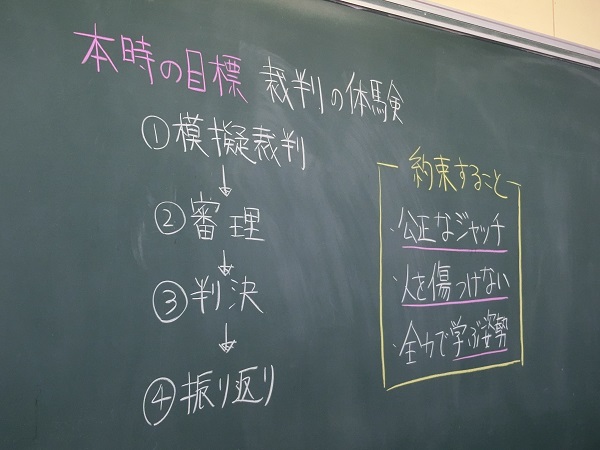 本時の目標 裁判の体験
①模擬裁判
↓
②審理
↓
③判決
↓
④振り返り
約束すること
・公正なジャッチ
・人を傷つけない
・全力で学ぶ姿勢